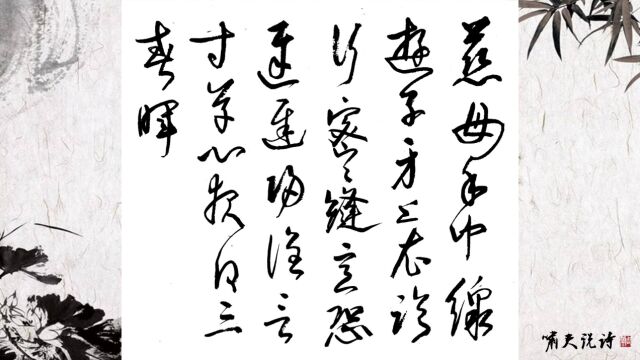 慈母手中線
遊子身上衣臨
行密〻縫意恐
遲遲歸誰言
寸草心報得三
春暉
嘯夫说诗